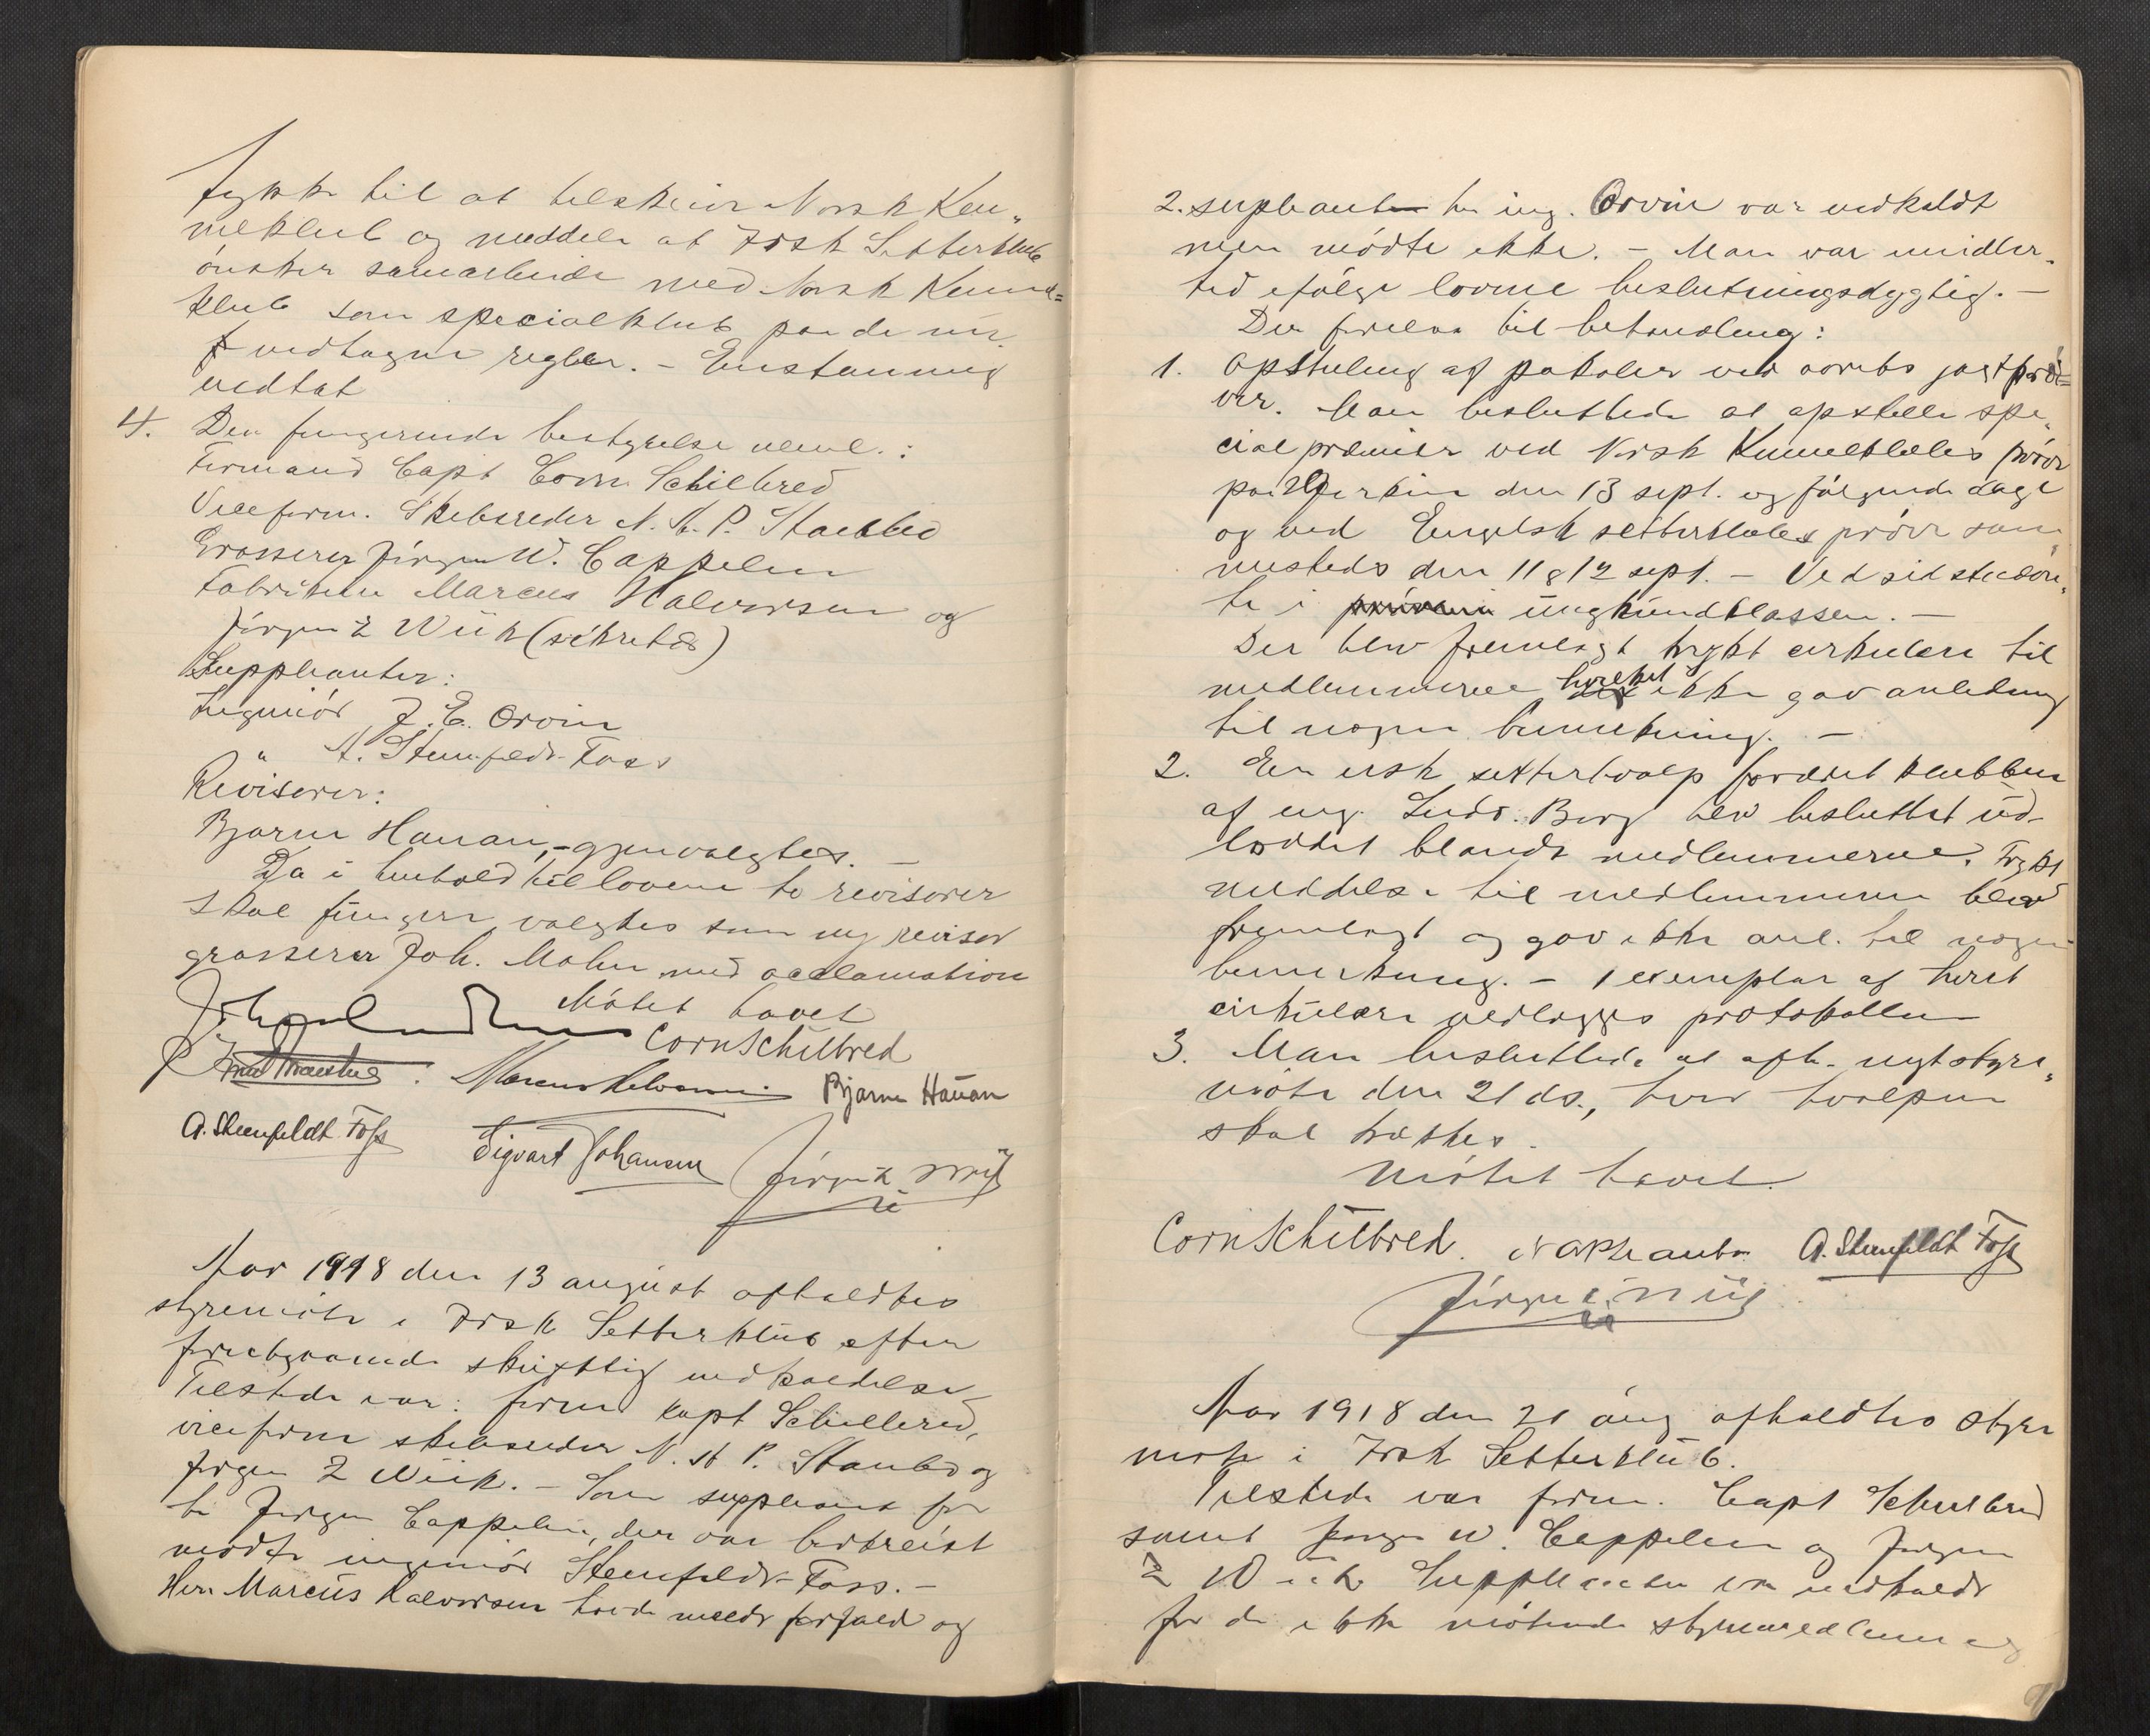 tykke til at tilskrive Norsk Ken-
nelklub og meddele at Irsk Setterklub
ønsker samarbeide med Norsk Kennel=
klub som specialklub paa de nu
vedtagne regler. - Enstemmig
vedtat
4. Den fungerende bestyrelse neml.:
Formand Capt Corn. Schilbred
Viceform. Skibsreder N. A. P. Staubo
Grosserer Jörgen W. Cappelen
Fabrikeier Marcus Halvorsen og
Jörgen Z Wiik (sekretær)
Suppleanter:
Ingeniör J. E. Orvin
" A. Steenfeldt-Foss
Revisorer:
Bjarne Hauan, - gjenvalgtes. -
Da i henhold til lovene to revisorer
skal fungere valgtes som ny revisor
grosserer Joh. Mohn med acclamation
Mötet hævet
Corn Schilbred
Marcus Halvorsen Bjarne Hauan
A. Steenfeldt Foss Sigvart Johansen Jörgen Z. Wiik
Aar 1918 den 13 august afholdtes
styremöte i Irsk Setterklub efter
forutgaaende skriftlig indkaldelse
Tilstede var: form. kapt Schilbred,
viceform skibsreder N. A. P. Staubo og
Jörgen Z Wiik. - Som suppleant for
hr Jörgen Cappelen, der var bortreist
mödte ingeniör Steenfeldt-Foss. -
Herr Marcus Halvorsen havde meldt forfald og
2. supleant hr ing. Orvin var indkaldt
men mödte ikke. - Man var imidler-
tid ifølge lovene beslutningsdygtig. -
Der forelaa til behandling:
1. Opstilling af pokaler ved aarets jagtprö=
ver. Man besluttede at opstille spe-
cialpræmier ved Norsk Kennelklubs pröver
paa Hjerkin den 13 sept. og fölgende dage
og ved Engelsk setterklubs pröver sam-
mesteds den 11 & 12 sept. - Ved sidstnævn-
te i unghundklassen. -
Der blev fremlagt trykt cirkulære til
medlemmerne hvilket ikke gav anledning
til nogen bemerkning. -
2. En irsk setterhvalp foræret klubben
af ing. Ludv. Berg blev besluttet ud-
loddet blandt medlemmerne. Trykt
meddelse til medlemmerne blev
fremlagt og gav ikke anl. til nogen
bemerkning. - 1 exemplar af hvert
cirkulære vedlægges protokollen
3. Man besluttede at afh. nyt styre-
möte den 21 ds., hvor hvalpen
skal trækkes.
Mötet hævet.
Corn Schilbred. A. Steenfeldt Foss
Jörgen Z. Wiik
Aar 1918 den 21 aug afholdtes styre
möte i Irsk Setterklub.
Tilstede var form. Capt Schilbred
samt Jörgen W. Cappelen og Jörgen
Z Wiik Suppleanter var indkaldt
for de ikke mötende styremedlemmer